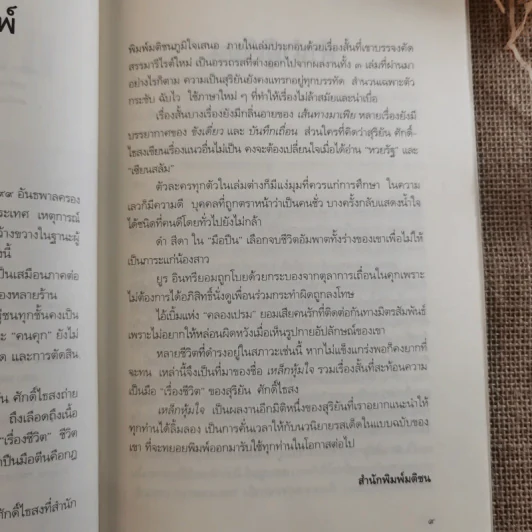 พ์
๙๙ อันธพาลครอง
ระเทศ เหตุการณ์
ว้างขวางในฐานะผู้
งนี้
ป็นเสมือนภาคต่อ
องหลายร้าน
ผู้ชนทุกชั้นคงเป็น
ะ "คนคุก" ยังไม่
ต และการตัดสิน
น ศักดิ์ไธสงถ่าย
ถึงเลือดถึงเนื้อ
"เรื่องชีวิต" ชีวิต
าปืนมือตีนคือกฎ
ศักดิ์ไธสงที่สำนัก
พิมพ์มติชนภูมิใจเสนอ ภายในเล่มประกอบด้วยเรื่องสั้นที่เขาบรรจงคัด
สรรมารีไรต์ใหม่ เป็นอรรถรสที่ต่างออกไปจากผลงานทั้ง ๓ เล่มที่ผ่านมา
อย่างไรก็ตาม ความเป็นสุริยันยังคงแทรกอยู่ทุกบรรทัด สำนวนเฉพาะตัว
กระชับ ฉับไว ใช้ภาษาใหม่ ๆ ที่ทำให้เรื่องไม่ล้าสมัยและน่าเบื่อ
เรื่องสั้นบางเรื่องยังมีกลิ่นอายของ เส้นทางมาเฟีย หลายเรื่องยังมี
บรรยากาศของ ซังเดี่ยว และ บันทึกเถื่อน ส่วนใครที่คิดว่าสุริยัน ศักดิ์-
ไธสงเขียนเรื่องแนวอื่นไม่เป็น คงจะต้องเปลี่ยนใจเมื่อได้อ่าน "หวยรัฐ" และ
"เซียนสลัม"
ตัวละครทุกตัวในเล่มต่างก็มีแง่มุมที่ควรแก่การศึกษา ในความ
เลวก็มีความดี บุคคลที่ถูกตราหน้าว่าเป็นคนชั่ว บางครั้งกลับแสดงน้ำใจ
ได้ชนิดที่คนดีโดยทั่วไปยังไม่กล้า
ดำ สีดา ใน "มือปืน" เลือกจบชีวิตอัมพาตทั้งร่างของเขาเพื่อไม่ให้
เป็นภาระแก่น้องสาว
ยูร อินทรียอมถูกโบยด้วยกระบองจากตุลาการเถื่อนในคุกเพราะ
ไม่ต้องการได้อภิสิทธิ์นั่งดูเพื่อนร่วมกระทำผิดถูกลงโทษ
ไอ้เบิ้มแห่ง "คลองเปรม" ยอมเสียคนรักที่ติดต่อกันทางมิตรสัมพันธ์
เพราะไม่อยากให้หล่อนผิดหวังเมื่อเห็นรูปกายอัปลักษณ์ของเขา
หลายชีวิตที่ดำรงอยู่ในสภาวะเช่นนี้ หากไม่แข็งแกร่งพอก็คงยากที่
จะทน เหล่านี้จึงเป็นที่มาของชื่อ เหล็กหุ้มใจ รวมเรื่องสั้นที่สะท้อนความ
เป็นมือ "เรื่องชีวิต" ของสุริยัน ศักดิ์ไธสง
เหล็กหุ้มใจ เป็นผลงานอีกมิติหนึ่งของสุริยันที่เราอยากแนะนำให้
ทุกท่านได้ลิ้มลอง เป็นการคั่นเวลาให้กับนวนิยายรสเด็ดในแบบฉบับของ
เขา ที่จะทยอยพิมพ์ออกมารับใช้ทุกท่านในโอกาสต่อไป
สำนักพิมพ์มติชน